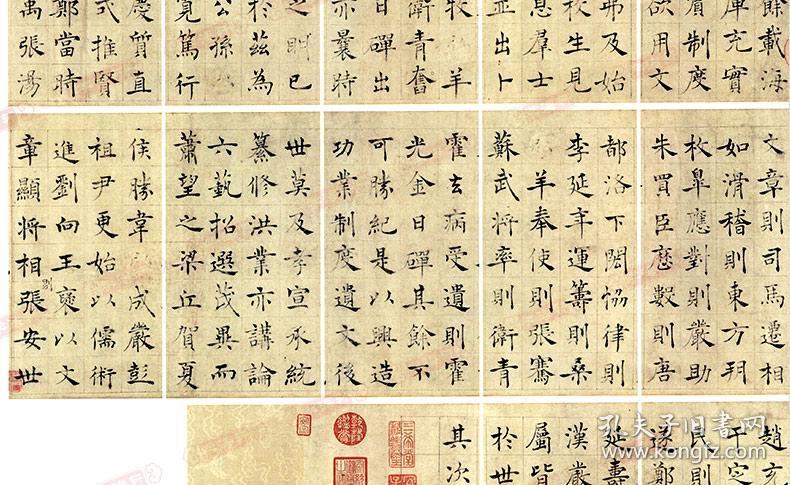 餘載海
庫充實
制度
欲用文
弗及始
枚生見
息羣士
並出卜
牧羊
衛青奮
日磾出
亦曩時
之明已
於茲為
公孫
寬篤行
慶質直
式推賢
鄭當時
禹張湯
文章則司馬遷相
如滑稽則東方朔
枚皋應對則嚴助
朱買臣曆數則唐
都洛下閎協律則
李延年運籌則桑
羊奉使則張騫
蘇武將率則衛青
霍去病受遺則霍
光金日磾其餘不
可勝紀是以興造
功業制度遺文後
世莫及孝宣承統
纂修洪業亦講論
六藝招選茂異而
蕭望之梁丘賀夏
侯勝韋成嚴彭
祖尹更始以儒術
進劉向王褒以文
章顯將相張安世
劉
趙充
于定
民則
遂鄭
延壽
漢嚴
屬皆
於世
其次
孔夫子旧书网
kongfz.com